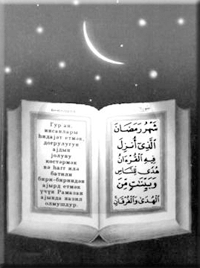 Гур'ан,
инсанлары
һидајәт етмәк,
доғрулуғун
ајдын
јолуну
көстәрмәк
вә һагг илә
батили
бири-бириндән
ајырд етмәк
үчүн Рамазан
ајында назил
олмушдур.
شَهْرُ رَمَضَانَ
الَّذِي أُنْزِلَ
فِيهِ الْقُرْآنُ
هُدًى لِلنَّاسِ
وَبَيِّنَاتٍ مِنَ
الْهُدَى وَالْفُرْقَانِ